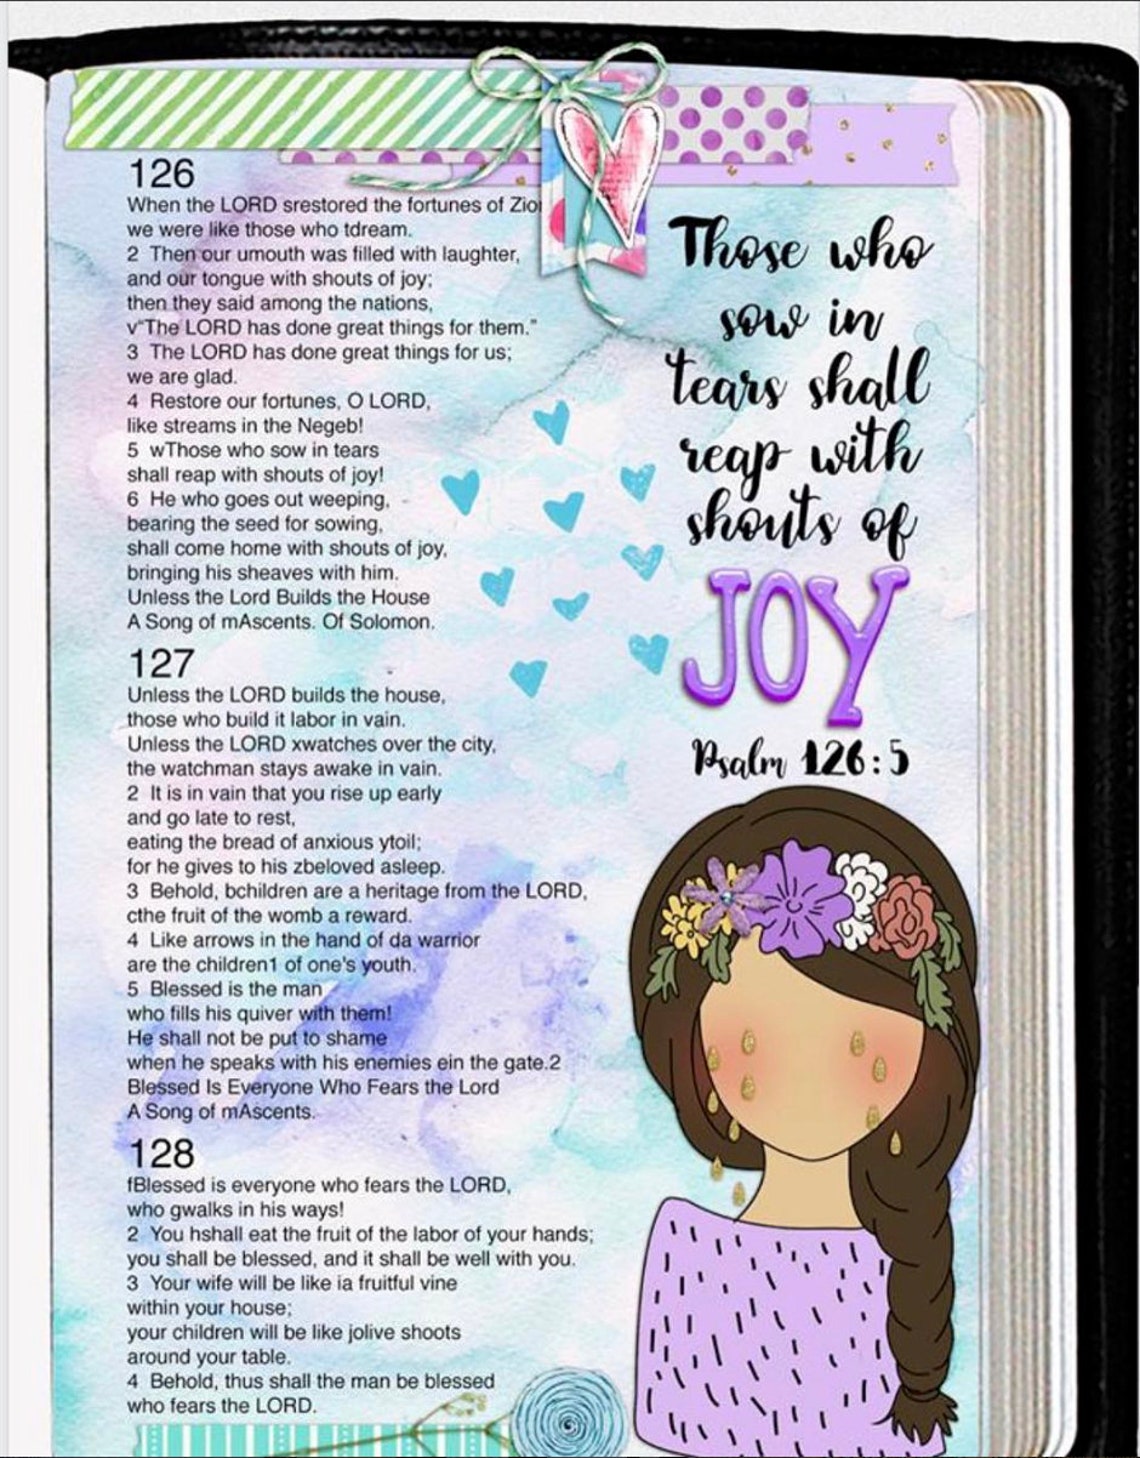 126
When the LORD srestored the fortunes of Zio
we were like those who tdream.
2 Then our umouth was filled with laughter,
and our tongue with shouts of joy;
then they said among the nations,
v"The LORD has done great things for them."
3 The LORD has done great things for us;
we are glad.
4 Restore our fortunes, O LORD,
like streams in the Negeb!
5 wThose who sow in tears
shall reap with shouts of joy!
6 He who goes out weeping,
bearing the seed for sowing,
shall come home with shouts of joy,
bringing his sheaves with him.
Unless the Lord Builds the House
A Song of mAscents. Of Solomon.
127
Unless the LORD builds the house,
those who build it labor in vain.
Unless the LORD xwatches over the city,
the watchman stays awake in vain.
2 It is in vain that you rise up early
and go late to rest,
eating the bread of anxious ytoil;
for he gives to his zbeloved asleep.
3 Behold, bchildren are a heritage from the LORD,
cthe fruit of the womb a reward.
4 Like arrows in the hand of da warrior
are the children1 of one's youth.
5 Blessed is the man
who fills his quiver with them!
He shall not be put to shame
when he speaks with his enemies ein the gate.2
Blessed Is Everyone Who Fears the Lord
A Song of mAscents.
128
fBlessed is everyone who fears the LORD,
who gwalks in his ways!
2 You hshall eat the fruit of the labor of your hands;
you shall be blessed, and it shall be well with you.
3 Your wife will be like ia fruitful vine
within your house;
your children will be like jolive shoots
around your table.
4 Behold, thus shall the man be blessed
who fears the LORD.
Those who
sow in
tears shall
reap with
shouts of
JOY
Psalm 126:5